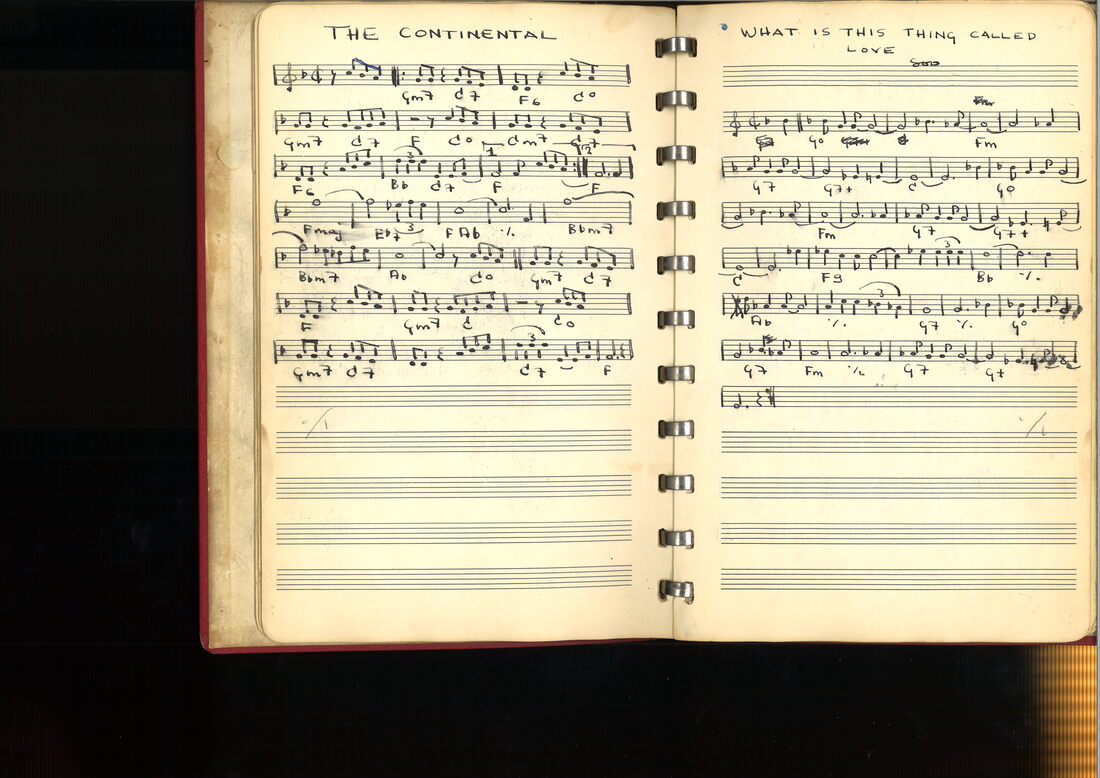 THE CONTINENTAL
Gm7 C7 F6 C°
Gm7 C7 F C° Gm7 C7
1 2
3
F6 Bb C7 F F
Fmaj Eb7 3 F Ab ٪ Bbm7
Bbm7 Ab C° Gm7 C7
F Gm7 C C°
3
Gm7 C7 C7 F
WHAT IS THIS THING CALLED
LOVE
G° Fm
G7 G7+ C G°
Fm G7 G7+
3
C F9 Bb ٪
3
Ab ٪ G7 ٪ G°
G7 Fm ٪ G7 G+